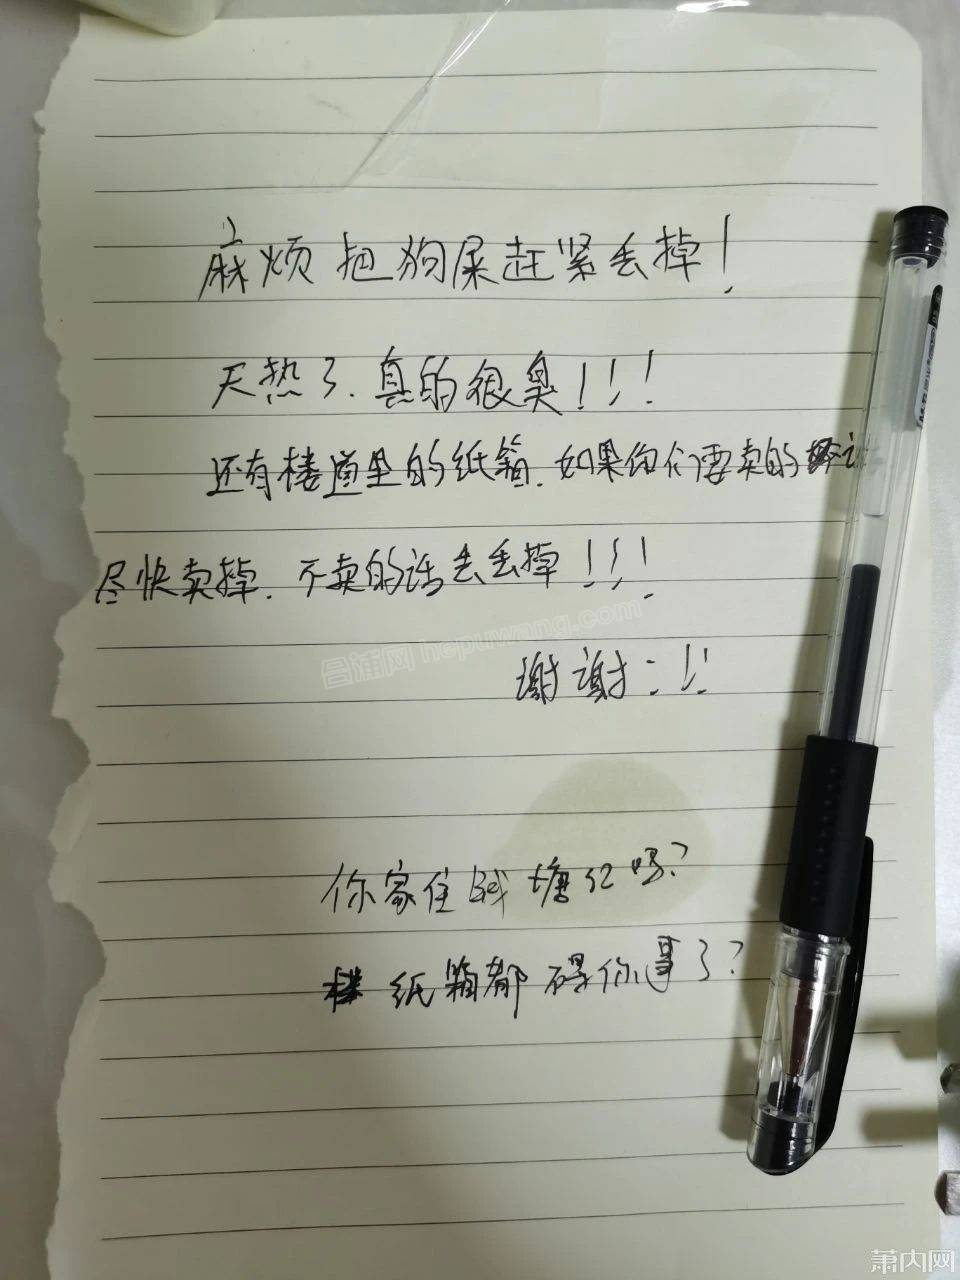 麻烦把狗屎赶紧丢掉！
天热了.真的很臭！！！
还有楼道里的纸箱.如果你们要卖的
尽快卖掉.不卖的话丢丢掉！！！
谢谢：！！
你家住钱塘江吗？
纸箱都碍你事了？
吕浦网 hepuwang.com
萧内网